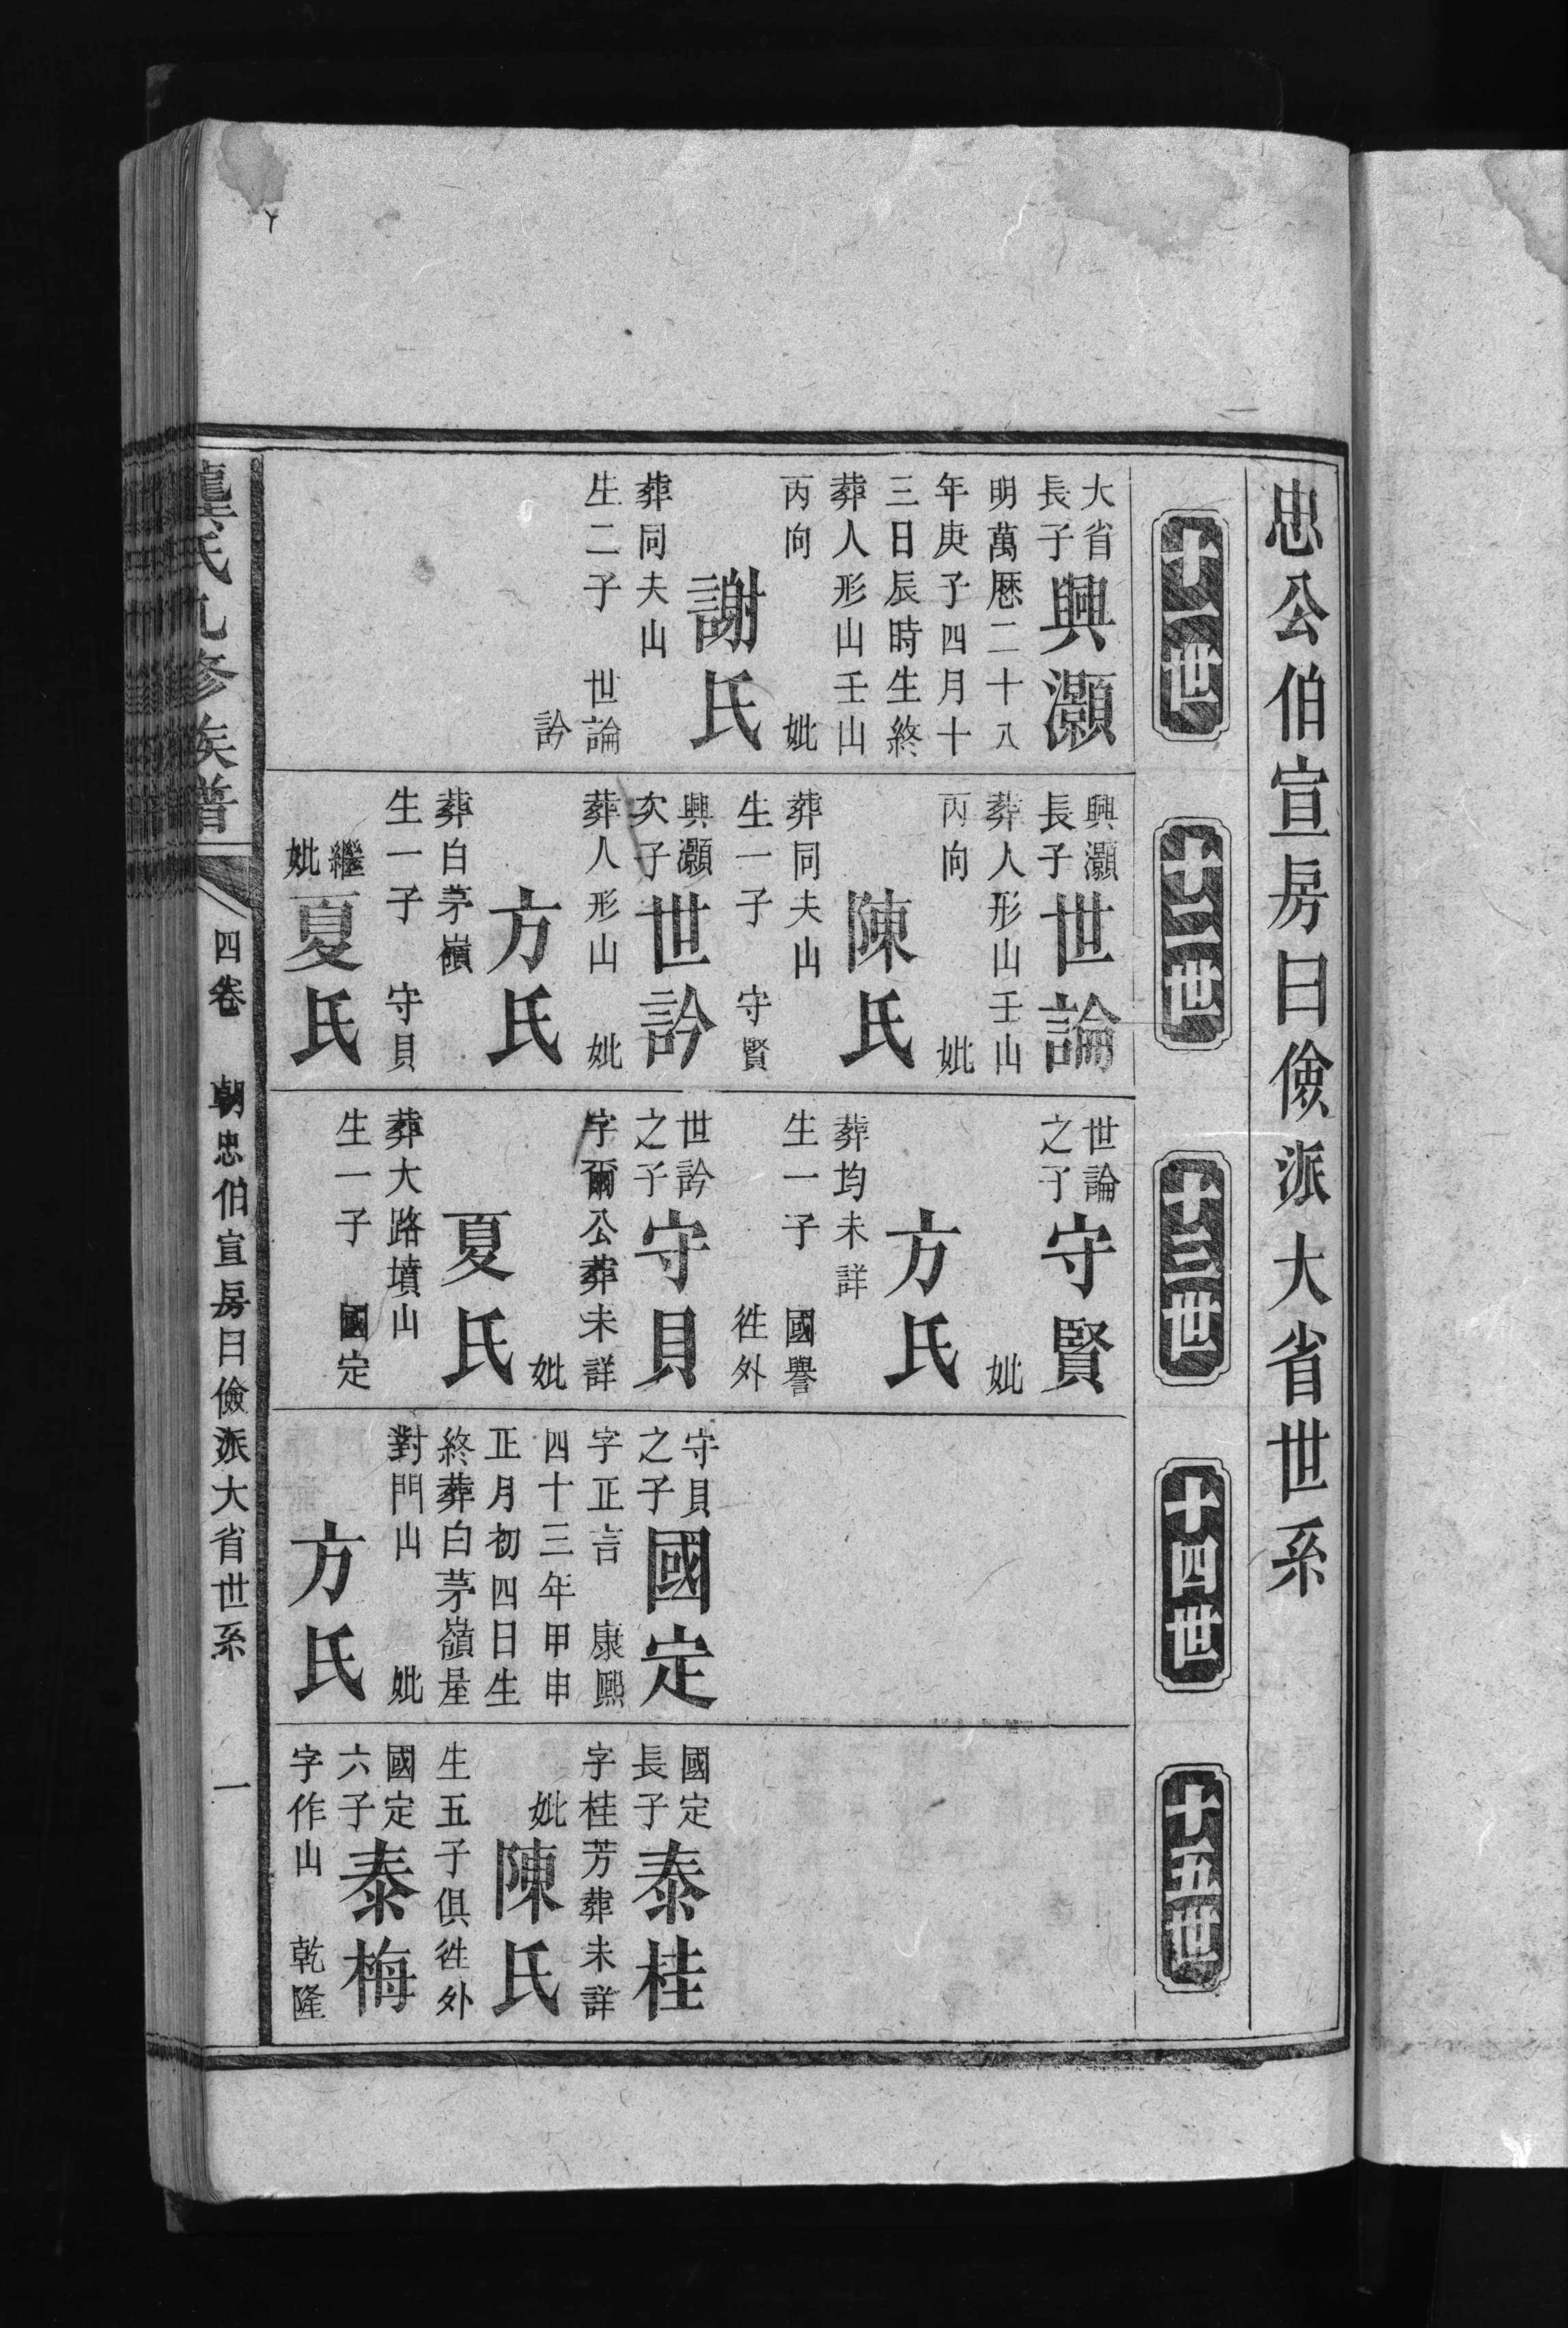 忠公伯宣房日儉派大省世系
十一世
大省
長子
興灝
明萬曆二十八
年庚子四月十
三日辰時生終
葬人形山壬山
丙向 妣
謝氏
葬同夫山
生二子 世論
訡
十二世
興灝
長子
世論
葬人形山壬山
丙向 妣
陳氏
葬同夫山
生一子 守賢
興灝
次子
世訡
葬人形山 妣
方氏
葬白茅嶺
生一子 守貝
繼
妣
夏氏
十三世
世論
之子
守賢
妣
方氏
葬均未詳
生一子 國譽
徃外
世訡
之子
守貝
字爾公葬未詳
妣
夏氏
葬大路墳山
生一子 國定
十四世
守貝
之子
國定
字正言 康熈
四十三年甲申
正月初四日生
終葬白茅嶺屋
對門山 妣
方氏
十五世
國定
長子
泰桂
字桂芳葬未詳
妣
陳氏
生五子俱徃外
國定
六子
泰梅
字作山 乾隆
龔氏九修族譜
四卷 朝忠伯宣房日儉派大省世系 一